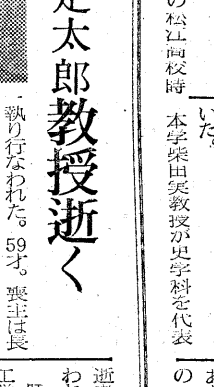 の松江高校時
いた。
本学柴田実教授が史学科を代表
太郎教授逝く
執り行なわれた。59才。喪主は長
の
逝
わ
工